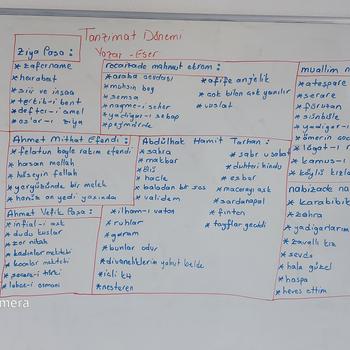 Tanzimat Dönemi
Yazar - Eser
Ziya Paşa :
* zafername
* harabat
* şiir ve inşaa
* terkib-i bent
* defter-i amel
recaizade mahmut ekrem :
* araba sevdası
* muhsin bey
* şemsa
* nağme-i seher
* yadigar-ı şebap
* pejmürde
* afife anjelik
* çok bilen çok yanılır
* vuslat
muallim n
* ateşpare
* şerare
* fürüzan
* sünbüle
* yadigar-ı
* ömerin çoc
* lügat-ı n
* kamus-ı
* köylü kızla
Ahmet Mithat Efendi :
* felatun beyle rakım efendi
* hasan mellah
* hüseyin fellah
* yeryüzünde bir melek
* henüz on yedi yaşında
Abdülhak Hamit Tarhan :
* sahra
* makber
* ölü
* hacle
* baladan bir ses
* validem
* sabr u sebat
* duhter-i hindu
* eşber
* macera-yı aşk
* sardanapal
* finten
* tayflar geçidi
* ilham-ı vatan
* ruhlar
* garam
* bunlar odur
* divaneliklerim yahut belde
* nesteren
nabizade na
* karabibik
* zehra
* yadigarlarım
* zavallı kız
* sevda
* hala güzel
* haspa
* heves ettim
Ahmet Vefik Paşa :
* infial-i aşk
* dudu kuşları
* zor nikah
* kadınlar mektebi
* kocalar mektebi
* lehce-i osmani
mera